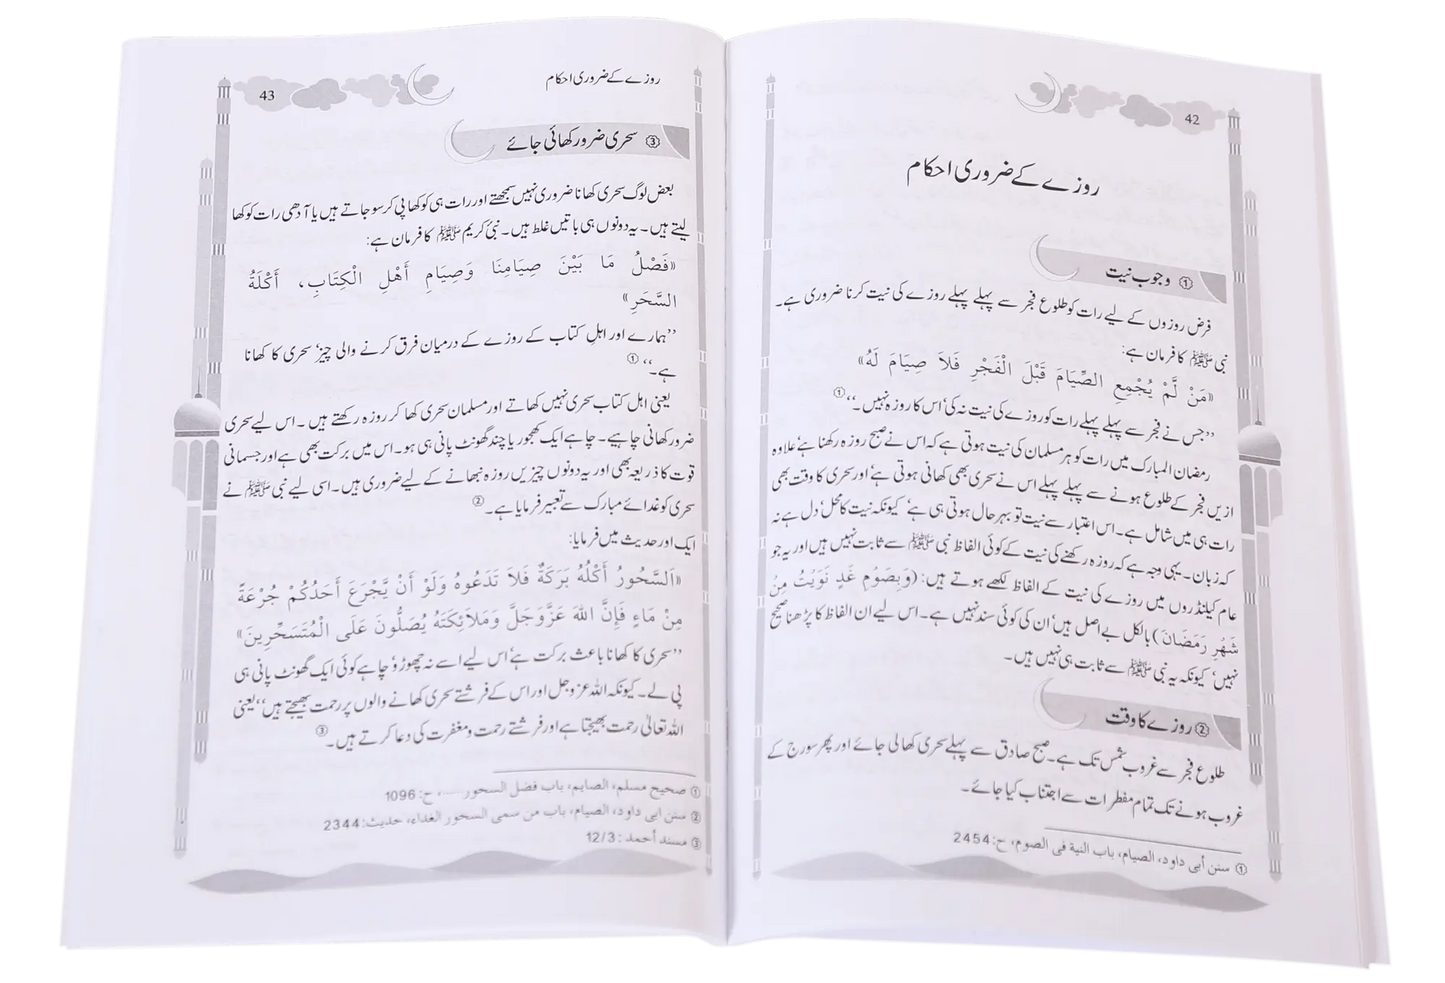 42
روزے کے ضروری احکام
① وجوب نیت
فرض روزوں کے لیے رات کو طلوع فجر سے پہلے پہلے روزے کی نیت کرنا ضروری ہے۔
نبی ﷺ کا فرمان ہے:
«مَنْ لَّمْ يُجْمِعِ الصِّيَامَ قَبْلَ الْفَجْرِ فَلاَ صِيَامَ لَهُ»
’’جس نے فجر سے پہلے پہلے رات کو روزے کی نیت نہ کی‘ اس کا روزہ نہیں۔‘‘①
رمضان المبارک میں رات کو ہر مسلمان کی نیت ہوتی ہے کہ اس نے صبح روزہ رکھنا ہے‘ علاوہ
ازیں فجر کے طلوع ہونے سے پہلے پہلے اس نے سحری بھی کھانی ہوتی ہے‘ اور سحری کا وقت بھی
رات ہی میں شامل ہے۔ اس اعتبار سے نیت تو بہرحال ہوتی ہی ہے‘ کیونکہ نیت کا محل‘ دل ہے نہ
کہ زبان۔ یہی وجہ ہے کہ روزہ رکھنے کی نیت کے کوئی الفاظ نبی ﷺ سے ثابت نہیں ہیں اور یہ جو
عام کیلنڈروں میں روزے کی نیت کے الفاظ لکھے ہوتے ہیں: (وَبِصَوْمِ غَدٍ نَوَيْتُ مِنْ
شَهْرِ رَمَضَانَ) بالکل بے اصل ہیں‘ ان کی کوئی سند نہیں ہے۔ اس لیے ان الفاظ کا پڑھنا صحیح
نہیں‘ کیونکہ یہ نبی ﷺ سے ثابت ہی نہیں ہیں۔
② روزے کا وقت
طلوع فجر سے غروب شمس تک ہے۔ صبح صادق سے پہلے سحری کھا لی جائے اور پھر سورج کے
غروب ہونے تک تمام مفطرات سے اجتناب کیا جائے۔
① سنن أبی داود، الصیام، باب النیة فی الصوم، ح:2454
روزے کے ضروری احکام
43
③ سحری ضرور کھائی جائے
بعض لوگ سحری کھانا ضروری نہیں سمجھتے اور رات ہی کو کھا پی کر سو جاتے ہیں یا آدھی رات کو کھا
لیتے ہیں۔ یہ دونوں ہی باتیں غلط ہیں۔ نبی کریم ﷺ کا فرمان ہے:
«فَصْلُ مَا بَيْنَ صِيَامِنَا وَصِيَامِ أَهْلِ الْكِتَابِ، أَكْلَةُ
السَّحَرِ»
’’ہمارے اور اہلِ کتاب کے روزے کے درمیان فرق کرنے والی چیز‘ سحری کا کھانا
ہے۔‘‘①
یعنی اہل کتاب سحری نہیں کھاتے اور مسلمان سحری کھا کر روزہ رکھتے ہیں۔ اس لیے سحری
ضرور کھانی چاہیے۔ چاہے ایک کھجور یا چند گھونٹ پانی ہی ہو۔ اس میں برکت بھی ہے اور جسمانی
قوت کا ذریعہ بھی اور یہ دونوں چیزیں روزہ نبھانے کے لیے ضروری ہیں۔ اسی لیے نبی ﷺ نے
سحری کو غدائے مبارک سے تعبیر فرمایا ہے۔②
ایک اور حدیث میں فرمایا:
«اَلسَّحُورُ أَكْلُهُ بَرَكَةٌ فَلاَ تَدَعُوهُ وَلَوْ أَنْ يَّجْرَعَ أَحَدُكُمْ جُرْعَةً
مِنْ مَاءٍ فَإِنَّ اللهَ عَزَّوَجَلَّ وَمَلاَئِكَتَهُ يُصَلُّونَ عَلَى الْمُتَسَحِّرِينَ»
’’سحری کا کھانا باعث برکت ہے‘ اس لیے اسے نہ چھوڑو‘ چاہے کوئی ایک گھونٹ پانی ہی
پی لے۔ کیونکہ اللہ عزوجل اور اس کے فرشتے سحری کھانے والوں پر رحمت بھیجتے ہیں‘‘ یعنی
اللہ تعالیٰ رحمت بھیجتا ہے اور فرشتے رحمت و مغفرت کی دعا کرتے ہیں۔③
① صحیح مسلم، الصیام، باب فضل السحور.....، ح:1096
② سنن ابی داود، الصیام، باب من سمی السحور الغداء، حدیث:2344
③ مسند أحمد: 12/3